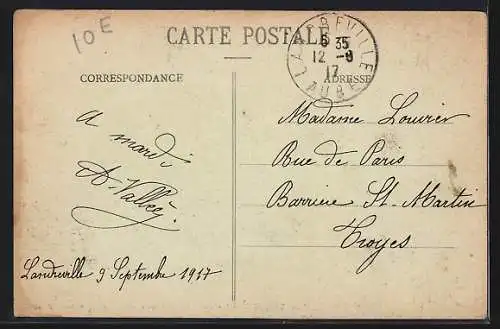 10E
CARTE POSTALE
LANDREVILLE
6 35
12 -9
17
AUBE
CORRESPONDANCE
ADRESSE
A mardi
A. Vallée.
Madame Louvier
Rue de Paris
Barrière St-Martin
Troyes
Landreville 9 Septembre 1917